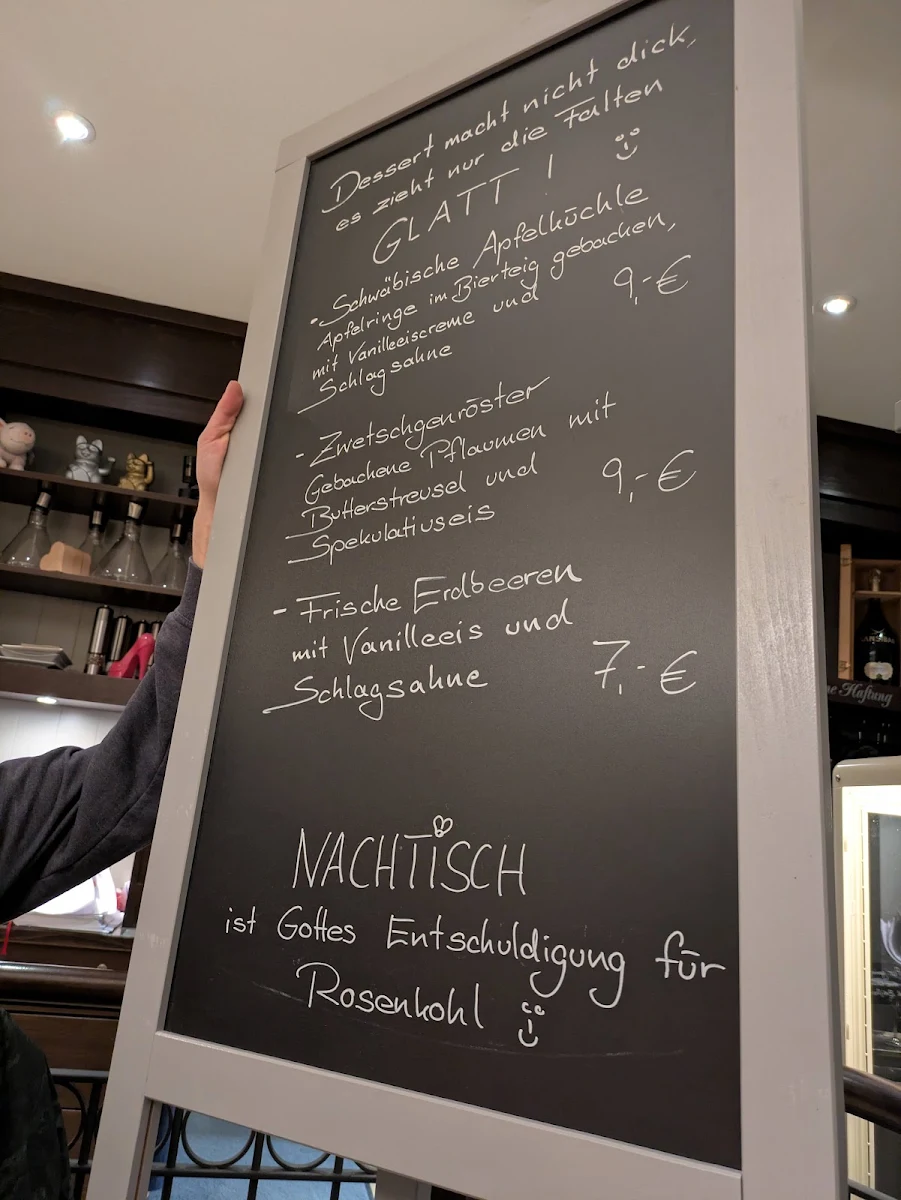 Dessert macht nicht dick,
es zieht nur die Falten
GLATT !
- Schwäbische Apfelküchle
Apfelringe im Bierteig gebacken,
mit Vanilleeiscreme und 9,-€
Schlagsahne
- Zwetschgenröster
Gebachene Pflaumen mit
Butterstreusel und 9,-€
Spekulatiuseis
- Frische Erdbeeren
mit Vanilleeis und
Schlagsahne 7,-€
NACHTISCH
ist Gottes Entschuldigung für
Rosenkohl
ne Haftung